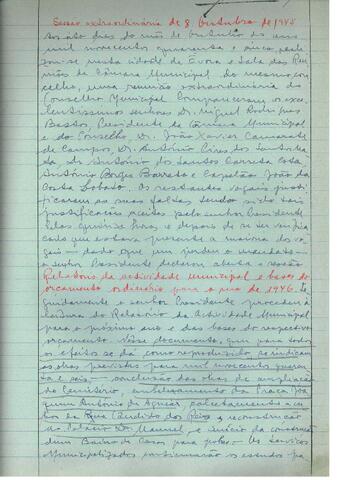 Sessão extraordinária de 8 Outubro de 1945
Aos oito dias do mês de Outubro do ano
mil novecentos quarenta e cinco,
se nesta cidade de Evora e Sala das Reu
niões da Câmara Municipal do mesmo con
celho, uma reunião extraordinária do
Conselho Municipal. Compareceram os exce
lentissimos senhores Dr. Miguel Rodrigues
Bastos, Presidente da Câmara Municipal
e do Conselho, Dr. João Xavier Camarate
de Campos, Dr. António
Dr. António dos Santos Cartaxo
António Borges Barreto e Capitão João da
Costa Lobato. Os restantes vogais justi
ficaram as suas faltas sendo tais
justificações aceites pelo senhor Presidente.
Pelas quinze horas e depois de se verifi
car que estava presente a maioria dos vo
gais
o senhor Presidente declarou aberta a sessão
Relatório da actividade municipal e bases do
orçamento ordinário para o ano de 1946. Se
guidamente o senhor Presidente procedeu à
leitura do Relatório da Actividade Municipal
para o próximo ano e das bases do respectivo
orçamento. Nesse documento, que para todos
os efeitos se dá como reproduzido, se indicam
as obras previstas para mil novecentos quaren
ta e seis — conclusão das obras de ampliação
do Cemitério, embelezamento da Praça Joa
quim António de Aguiar,
da Rua Cândido dos Reis, a reconstrução
do Palácio D. Manuel, e início da construção
dum Bairro de Casas para pobres. — Os Serviços
Municipalizados continuarão os estudos pa